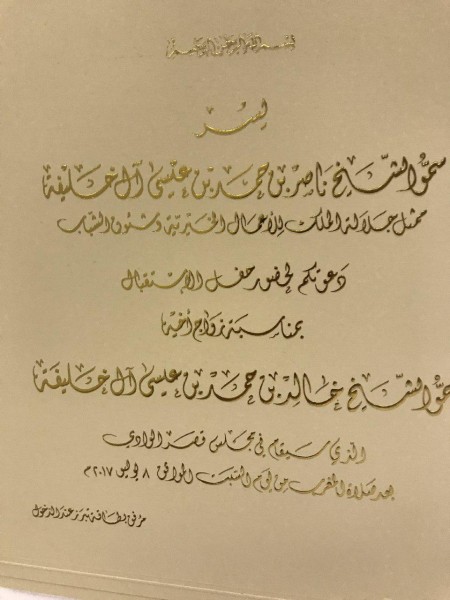 بسم الله الرحمن الرحيم
يسر
سمو الشيخ ناصر بن حمد بن عيسى آل خليفة
ممثل جلالة الملك للأعمال الخيرية وشئون الشباب
دعوتكم لحضور حفل الاستقبال
بمناسبة زواج أخيه
سمو الشيخ خالد بن حمد بن عيسى آل خليفة
الذي سيقام في مجلس قصر الوادي
بعد صلاة المغرب من يوم السبت الموافق ٨ يوليو ٢٠١٧م
مرفق بطاقة تبرز عند الدخول